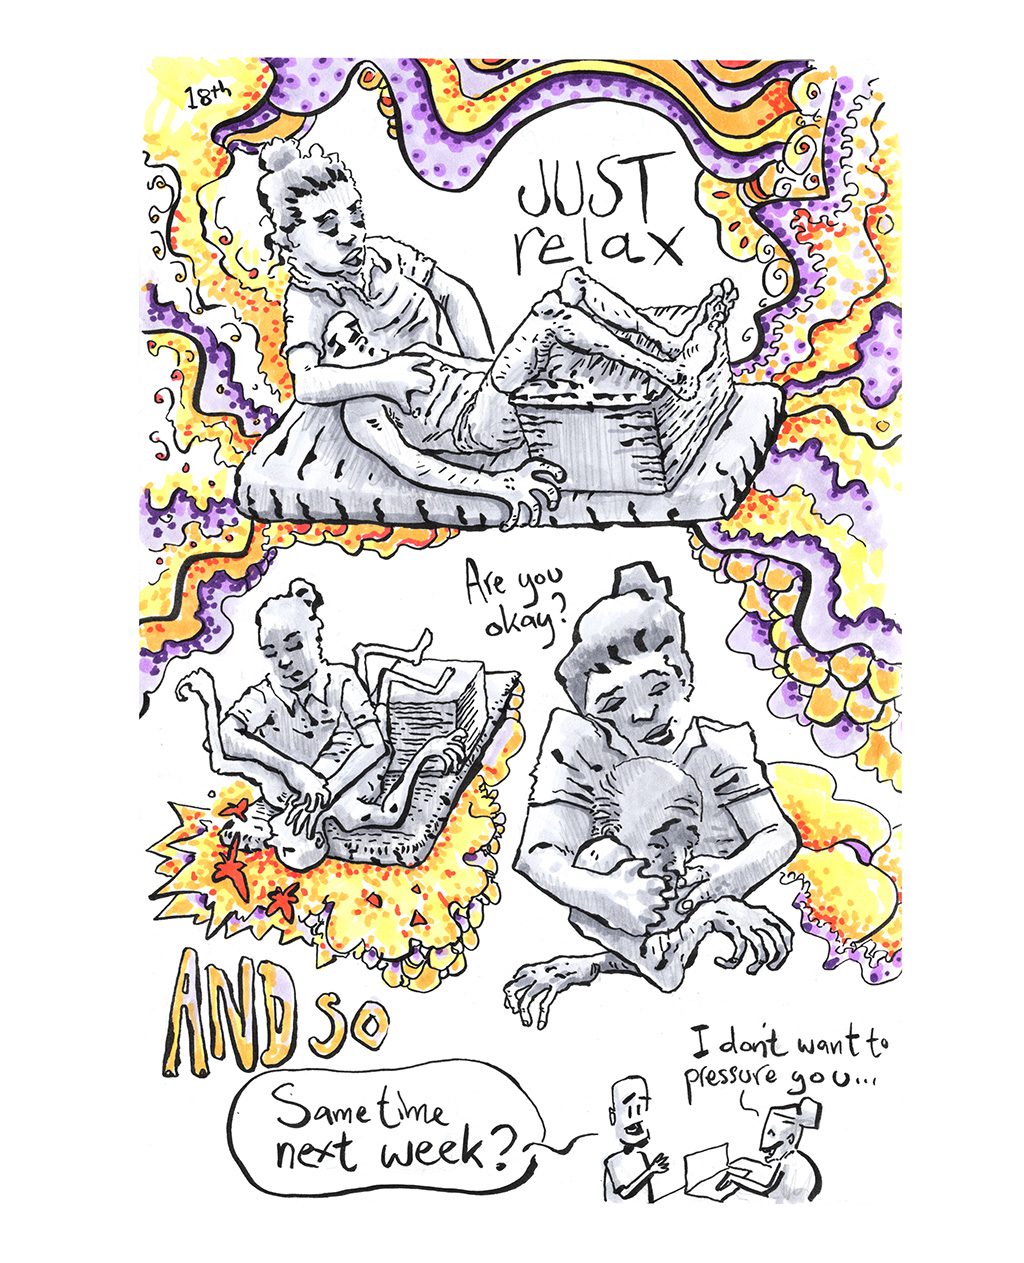 18th
JUST
relax
Are you
okay?
AND SO
I don't want to
pressure you...
Same time
next week?